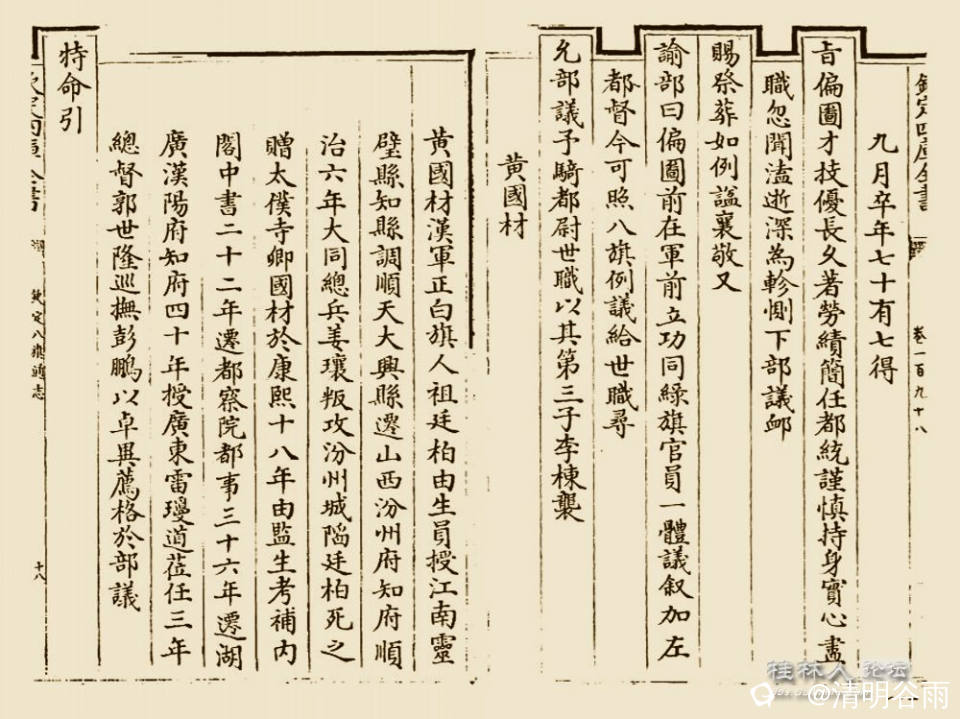 欽定四庫全書
卷一百九十八
九月卒年七十有七得
旨偏圖才技優長久著勞績簡任都統謹慎持身實心盡
職忽聞溘逝深為軫惻下部議卹
賜祭葬如例諡襄敬又
諭部曰偏圖前在軍前立功同綠旗官員一體議叙加左
都督今可照八旗例議給世職尋
允部議予騎都尉世職以其第三子李棟襲
黃國材
黃國材漢軍正白旗人祖廷柏由生員授江南靈
壁縣知縣調順天大興縣遷山西汾州府知府順
治六年大同總兵姜瓖叛攻汾州城陷廷柏死之
贈太僕寺卿國材於康熙十八年由監生考補內
閣中書二十二年遷都察院都事三十六年遷湖
廣漢陽府知府四十年授廣東雷瓊道莅任三年
總督郭世隆巡撫彭鵬以卓異薦格於部議
特命引
欽定四庫全書
欽定八旗通志
十八
桂林人论坛
@清明谷雨